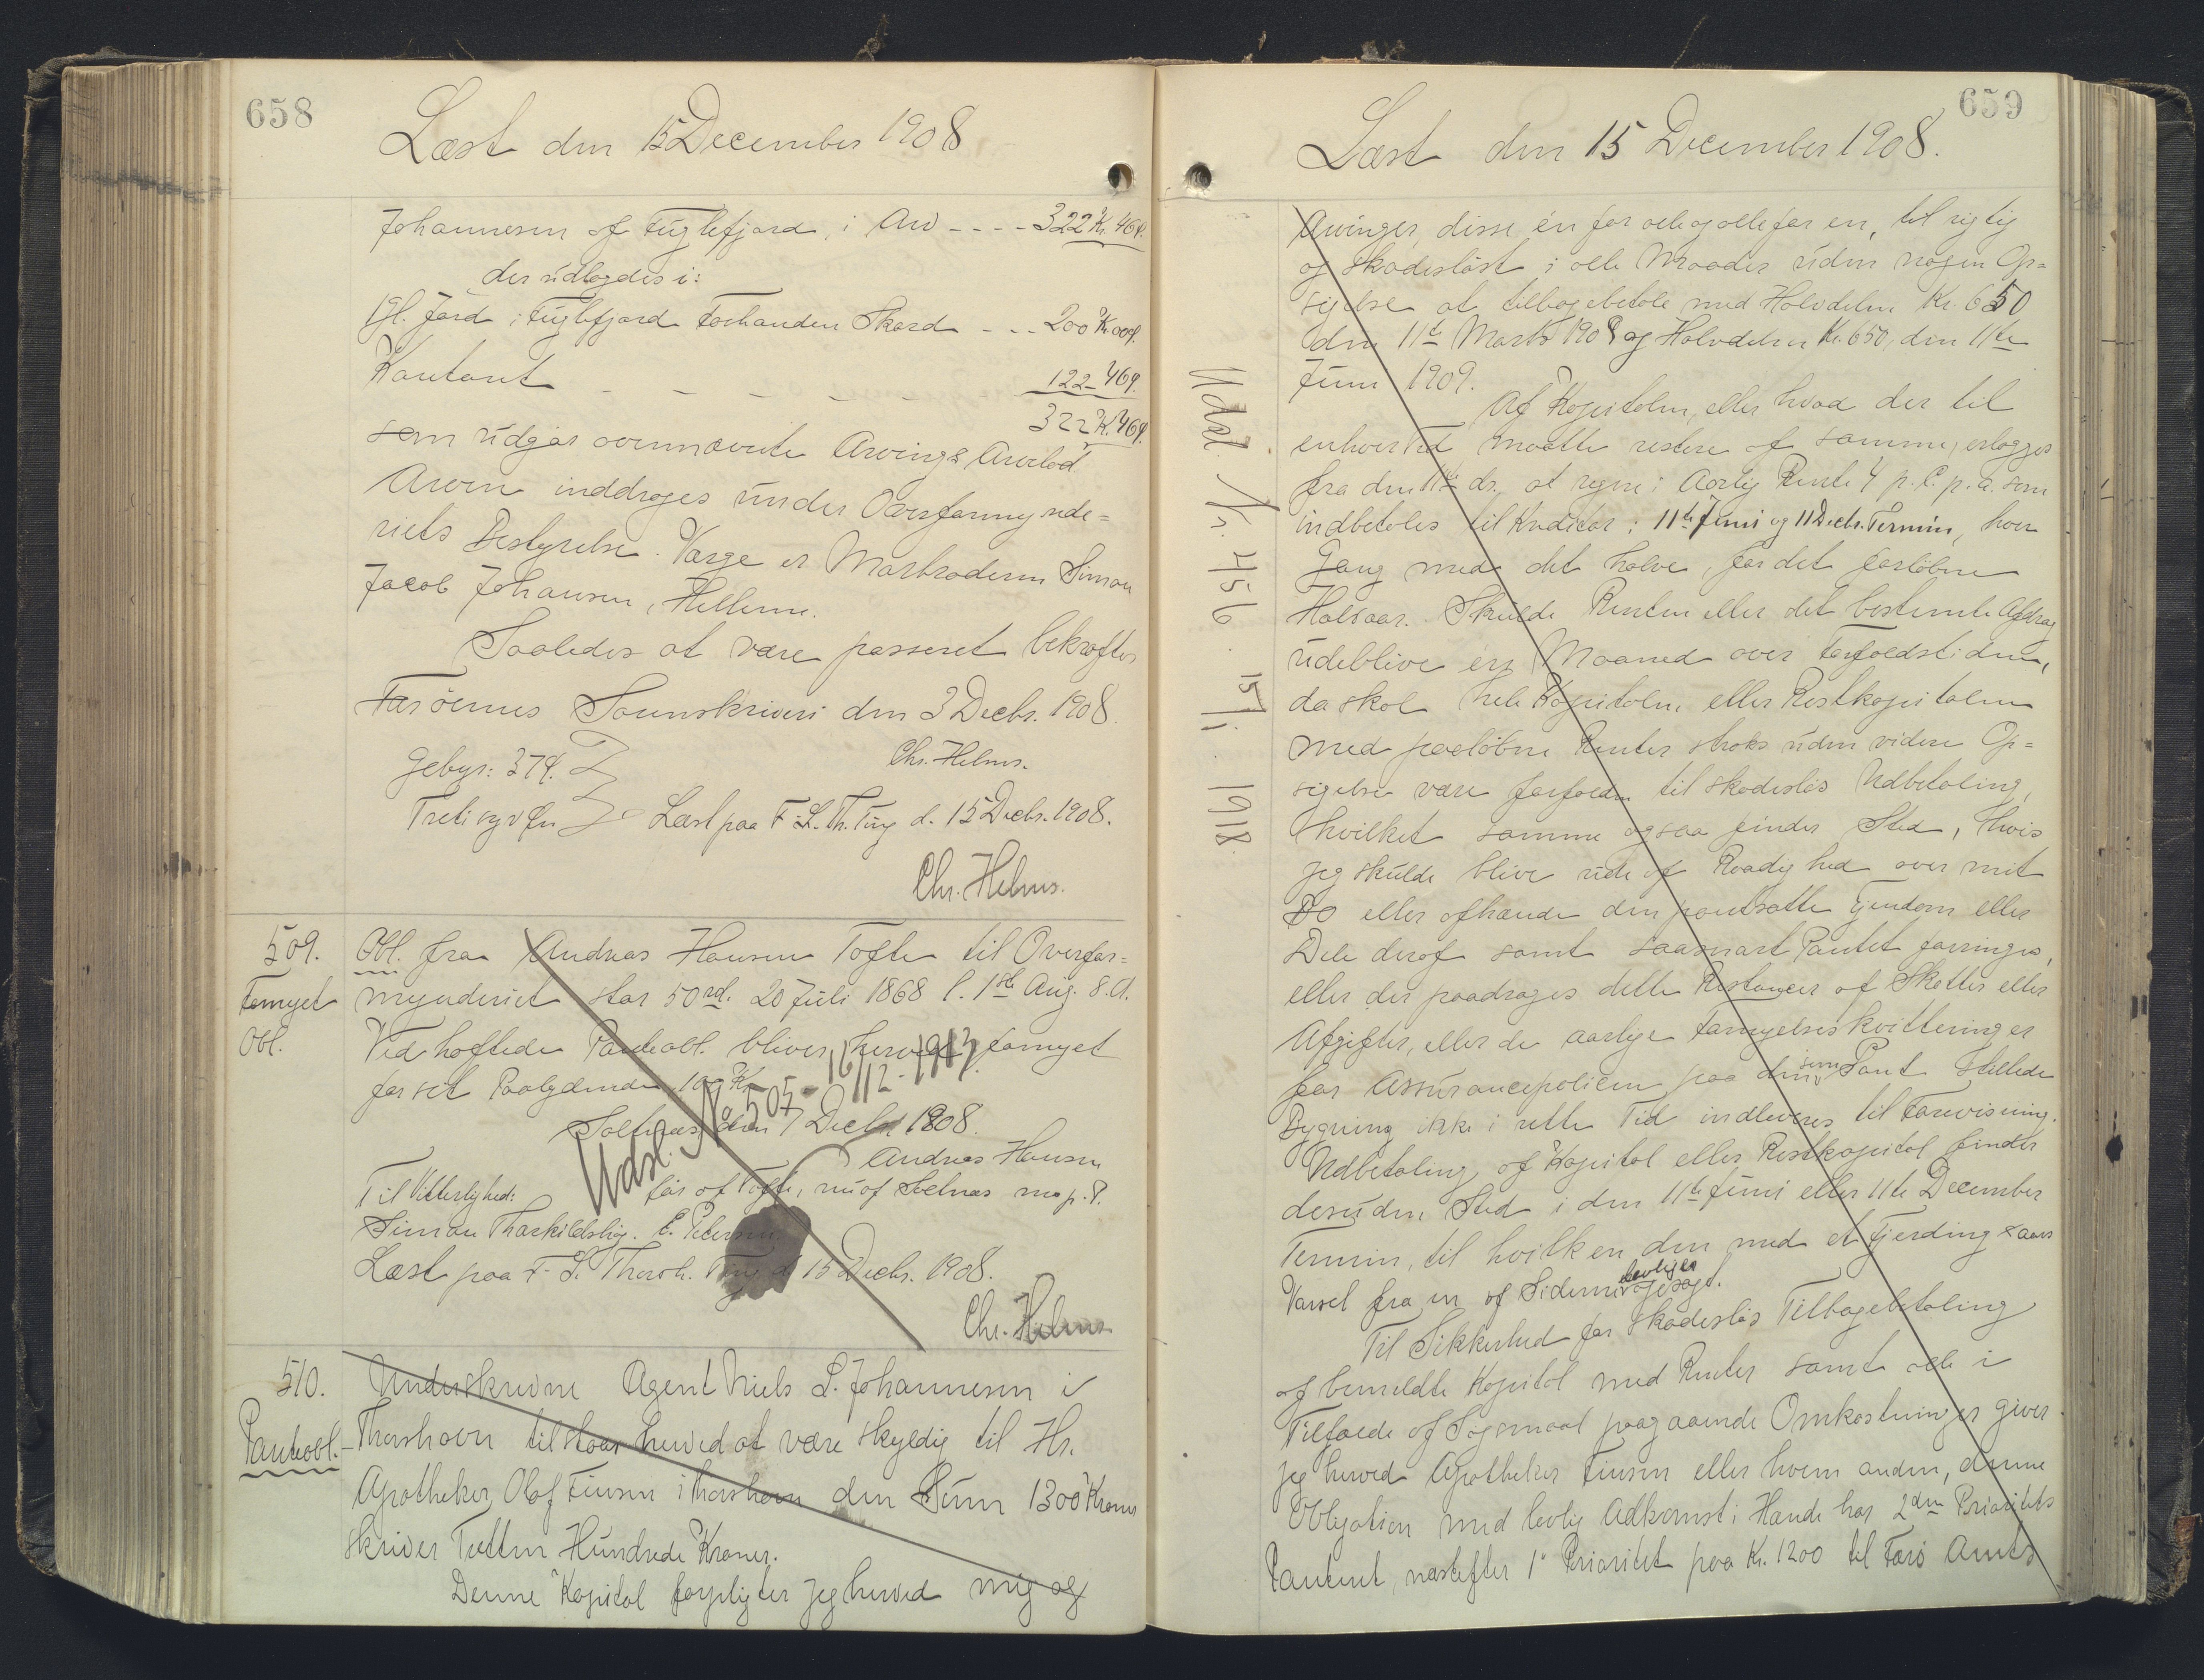 658
Læst den 15 December 1908
Johannesen af Fuglefjord, i Arv - - - - 322 Kr. 46 Ø.
der udlagdes i:
1 Gl. Jord i Fuglefjord Forhanden Skard - - - 200 Kr. 00 Ø.
Kontant - - - - - - 122 - 46 Ø.
322 Kr. 46 Ø.
som udgør ovennævnte Arvings Arvelod
Arven inddrages under Overformynde=
riets Bestyrelse. Værge er Morbroderen Simon
Jacob Johansen, Hellerne.
Saaledes at være passeret bekræftes
Færöernes Sorenskriveri den 3 Decbr. 1908.
Chr. Helms.
Gebyr: 37 Ø.
Treti syv Øre
Læst paa F. S. Th. Ting d. 15 Decbr. 1908.
Chr. Helms.
509.
Fornyet
Obl.
Obl. fra Andreas Hansen Tofte til Overfor=
mynderiet stor 50 rd. 20 Juli 1868 l. 1ste Aug. s. A.
Vedhæftede Panteobl. bliver herved fornyet
for sit Paalydende, 100 Kr.
Solmæs den 7 Decbr 1908.
Andreas Hansen
før af Tofte, nu af Solnæs m. p. P.
Til Vitterlighed:
Simon Thorkildshøj. E. Petersen.
Læst paa F. S. Thorsh. Ting d. 15 Decbr. 1908.
Chr. Helms
Udsl. No 505 - 16/12 - 1913.
510.
Panteobl.
Underskrevne Agent Niels L. Johannesen i
Thorshavn tilstaar herved at være skyldig til Hr.
Apotheker Olaf Finsen i Thorshavn den Sum 1300 Kroner
skriver Tretten Hundrede Kroner.
Denne Kapital forpligter jeg herved mig og
659
Læst den 15 December 1908.
Udsl. Nr. 456. 15/1 1918.
Arvinger, disse én for alle og alle for en, til rigtig
og skadesløst i alle Maader uden nogen Op=
sigelse at tilbagebetale med Halvdelen Kr. 650
den 11te Marts 1909 og Halvdelen Kr. 650, den 11te
Juni 1909.
Af Kapitalen, eller hvad der til
enhver Tid maatte restere af samme, erlægges
fra den 11te ds. at regne i Aarlig Rente 4 p. C. p. a. som
indbetales til Kreditor i 11te Juni og 11 Decbr. Termin, hver
Gang med det halve, for det forløbne
Halvaar. Skulde Renten eller det bestemte Afdrag
udeblive én Maaned over Forfaldstiden,
da skal hele Kapitalen eller Restkapitalen
med paaløbne Renter straks uden videre Op=
sigelse være forfalden til skadesløs Udbetaling,
hvilket samme ogsaa finder Sted, hvis
jeg skulde blive ude af Raadighed over mit
Bo eller afhænde den pantsatte Ejendom eller
Dele deraf samt saasnart Pantet forringes,
eller der paadrages dette Restancer af Skatter eller
Afgifter, eller de aarlige Fornyelseskvitteringer
for Assurancepolicen paa den som Pant stillede
Bygning ikke i rette Tid indleveres til Forevisning.
Udbetaling af Kapital eller Restkapital finder
desuden Sted i den 11te Juni eller 11te December
Termin, til hvilken den med et Fjerdingsaars
Varsel fra en af Siderne lovligen opsagt.
Til Sikkerhed for skadesløs Tilbagebetaling
af bemeldte Kapital med Renter samt alle i
Tilfælde af Søgsmaal paagaaende Omkostninger giver
jeg herved Apotheker Finsen eller hvem anden, denne
Obligation med lovlig Adkomst i Hænde har 2den Prioritets
Panteret, næstefter 1e Prioritet paa Kr. 1200 til Færø Amts